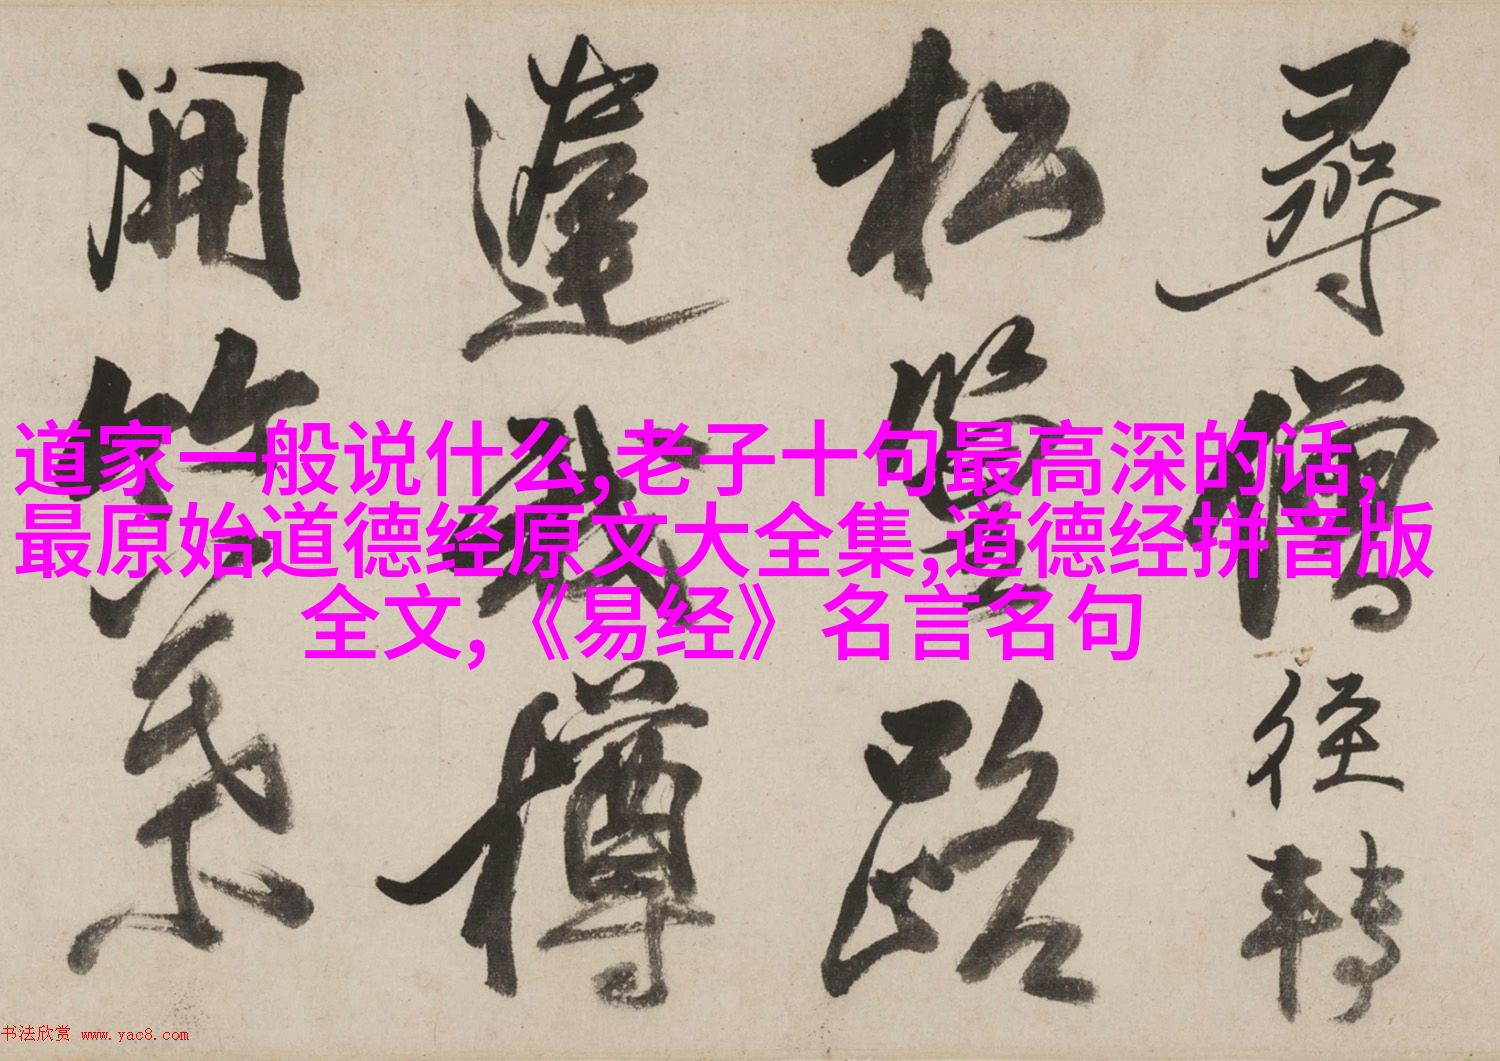 尋僧徑轉
松路
樽
開
道家一般说什么,老子十句最高深的话,
最原始道德经原文大全集,道德经拼音版
全文,《易经》名言名句
书法欣赏 www.yac8.com